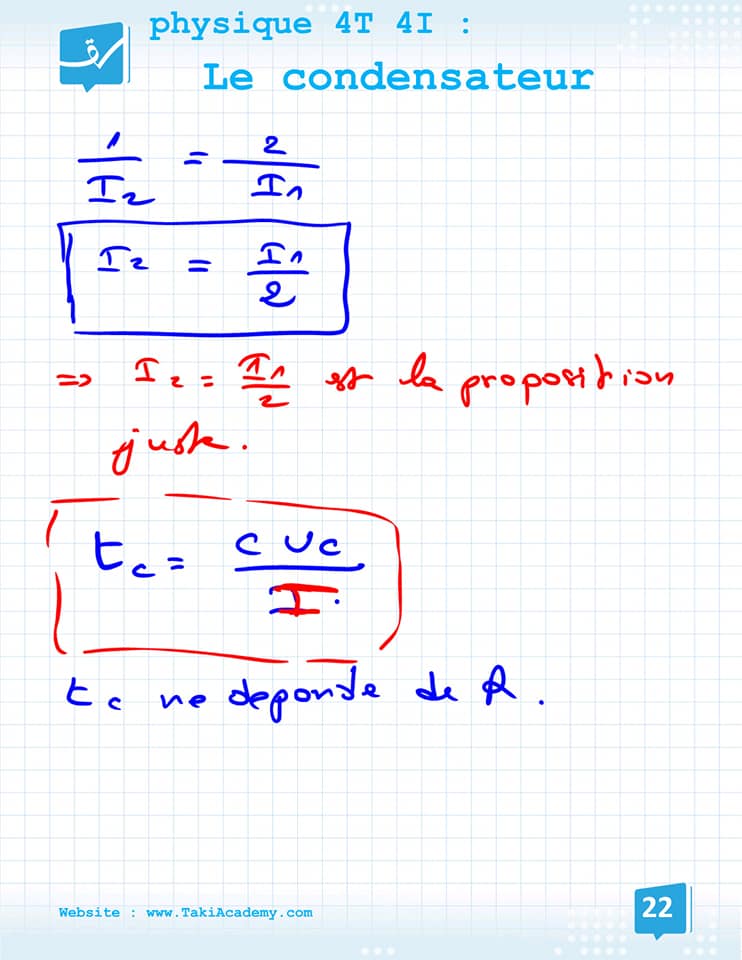 physique 4T 4I :
Le condensateur
1/I₂ = 2/I₁
I₂ = I₁/2
=> I₂ = I₁/2 est la proposition
juste.
t_c = C U_C/I
t_c ne deponde de R.
Website : www.TakiAcademy.com
22